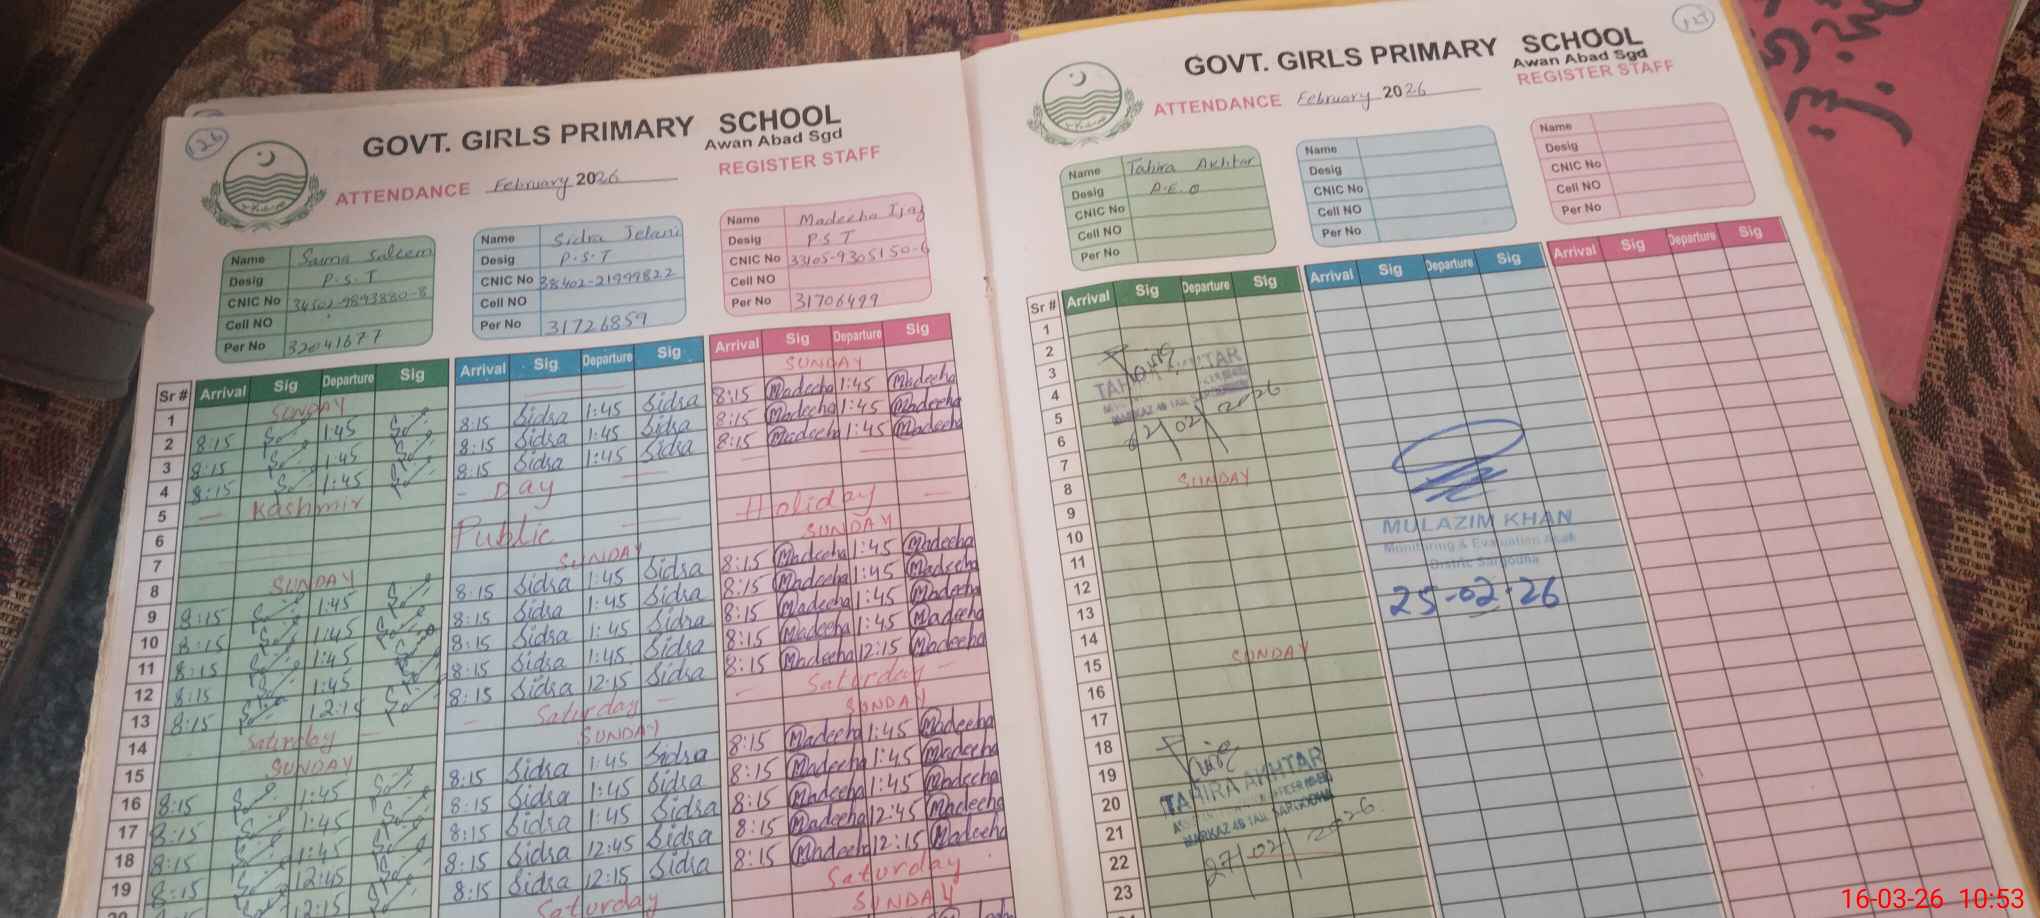 126
GOVT. GIRLS PRIMARY SCHOOL
Awan Abad Sgd
ATTENDANCE February 2026 REGISTER STAFF
Name Saima Saleem
Desig P.S.T
CNIC No 34502-9893880-8
Cell NO
Per No 32041677
Name Sidra Jelani
Desig P.S.T
CNIC No 38402-2199982-2
Cell NO
Per No 31726859
Name Madeeha Ijaz
Desig P S T
CNIC No 33105-9305150-6
Cell NO
Per No 31706499
Sr # Arrival Sig Departure Sig Arrival Sig Departure Sig Arrival Sig Departure Sig
1 SUNDAY SUNDAY
2 8:15 1:45 8:15 Sidra 1:45 Sidra 8:15 Madeeha 1:45 Madeeha
3 8:15 1:45 8:15 Sidra 1:45 Sidra 8:15 Madeeha 1:45 Madeeha
4 8:15 1:45 8:15 Sidra 1:45 Sidra 8:15 Madeeha 1:45 Madeeha
5 Kashmir Day Holiday
6 Public
7
8 SUNDAY SUNDAY SUNDAY
9 8:15 1:45 8:15 Sidra 1:45 Sidra 8:15 Madeeha 1:45 Madeeha
10 8:15 1:45 8:15 Sidra 1:45 Sidra 8:15 Madeeha 1:45 Madeeha
11 8:15 1:45 8:15 Sidra 1:45 Sidra 8:15 Madeeha 1:45 Madeeha
12 8:15 1:45 8:15 Sidra 1:45 Sidra 8:15 Madeeha 1:45 Madeeha
13 8:15 12:15 8:15 Sidra 12:15 Sidra 8:15 Madeeha 12:15 Madeeha
14 Saturday Saturday Saturday
15 SUNDAY SUNDAY SUNDAY
16 8:15 1:45 8:15 Sidra 1:45 Sidra 8:15 Madeeha 1:45 Madeeha
17 8:15 1:45 8:15 Sidra 1:45 Sidra 8:15 Madeeha 1:45 Madeeha
18 8:15 1:45 8:15 Sidra 1:45 Sidra 8:15 Madeeha 1:45 Madeeha
19 8:15 12:45 8:15 Sidra 12:45 Sidra 8:15 Madeeha 12:45 Madeeha
20 12:15 8:15 Sidra 12:15 Sidra 8:15 Madeeha 12:15 Madeeha
Saturday Saturday
SUNDAY
GOVT. GIRLS PRIMARY SCHOOL
Awan Abad Sgd
ATTENDANCE February 2026 REGISTER STAFF
Name Tahira Akhtar
Desig A.E.O
CNIC No
Cell NO
Per No
Name
Desig
CNIC No
Cell NO
Per No
Name
Desig
CNIC No
Cell NO
Per No
Sr # Arrival Sig Departure Sig Arrival Sig Departure Sig Arrival Sig Departure Sig
1
2
3
4
5
6
7
8 SUNDAY
9
10
11
12
13
14
15 SUNDAY
16
17
18
19
20
21
22
23
MULAZIM KHAN
Monitoring & Evaluation Asstt
Distric Sargodha
25-02-26
TAHIRA AKHTAR
MARKAZ
SARGODHA
27/02/2026
16-03-26 10:53